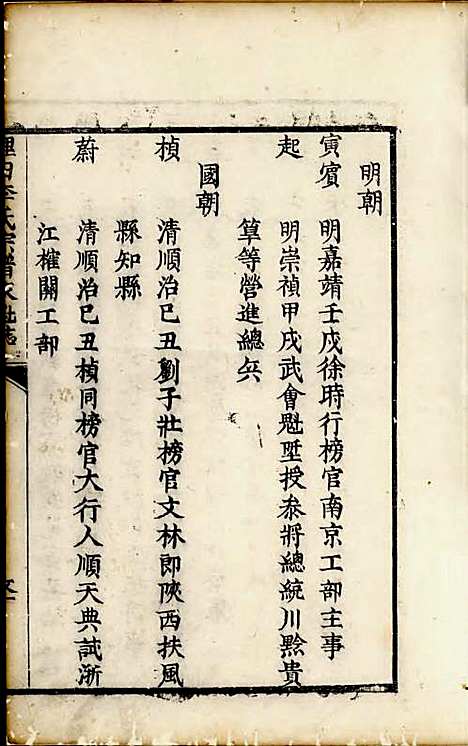 明朝
寅賔 明嘉靖壬戌徐時行榜官南京工部主事
起 明崇禎甲戌武會魁墅授叅將總統川黔貴
草等營進總兵
國朝
楨 清順治己丑劉子壯榜官文林郎陝西扶風
縣知縣
蔚 清順治己丑楨同榜官大行人順天典試浙
江榷關工部